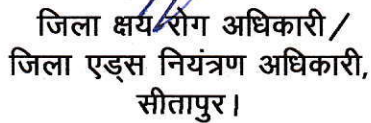 जिला क्षय रोग अधिकारी/
जिला एड्स नियंत्रण अधिकारी,
सीतापुर।